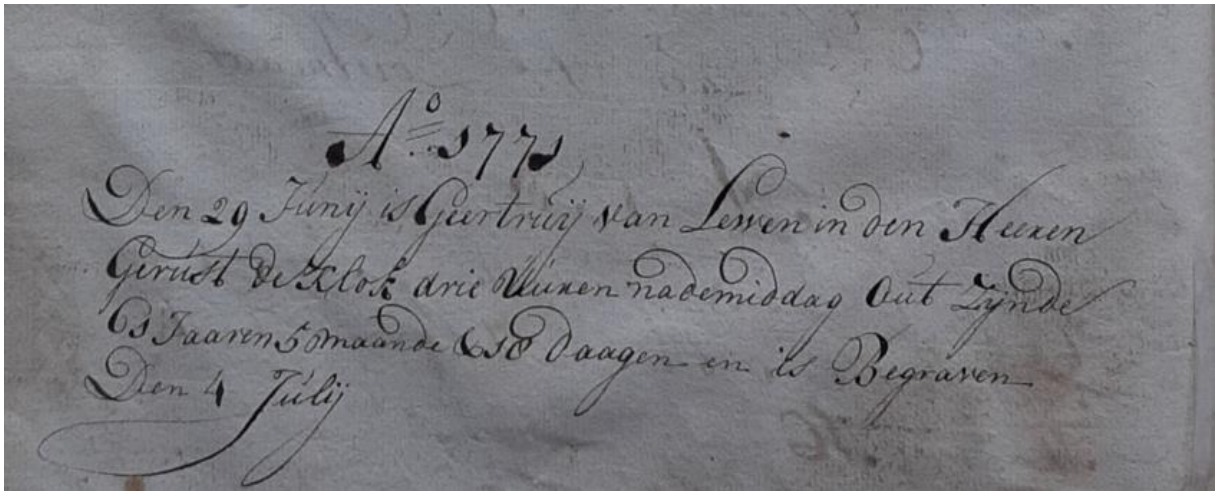 Ao 1771
Den 29 Junij is Geertruij van Lewen in den Heeren
Gerust de Klok drie Uuren nademiddag Out Zijnde
61 Jaaren 5 maande & 18 daagen en is Begraven
Den 4 Julij